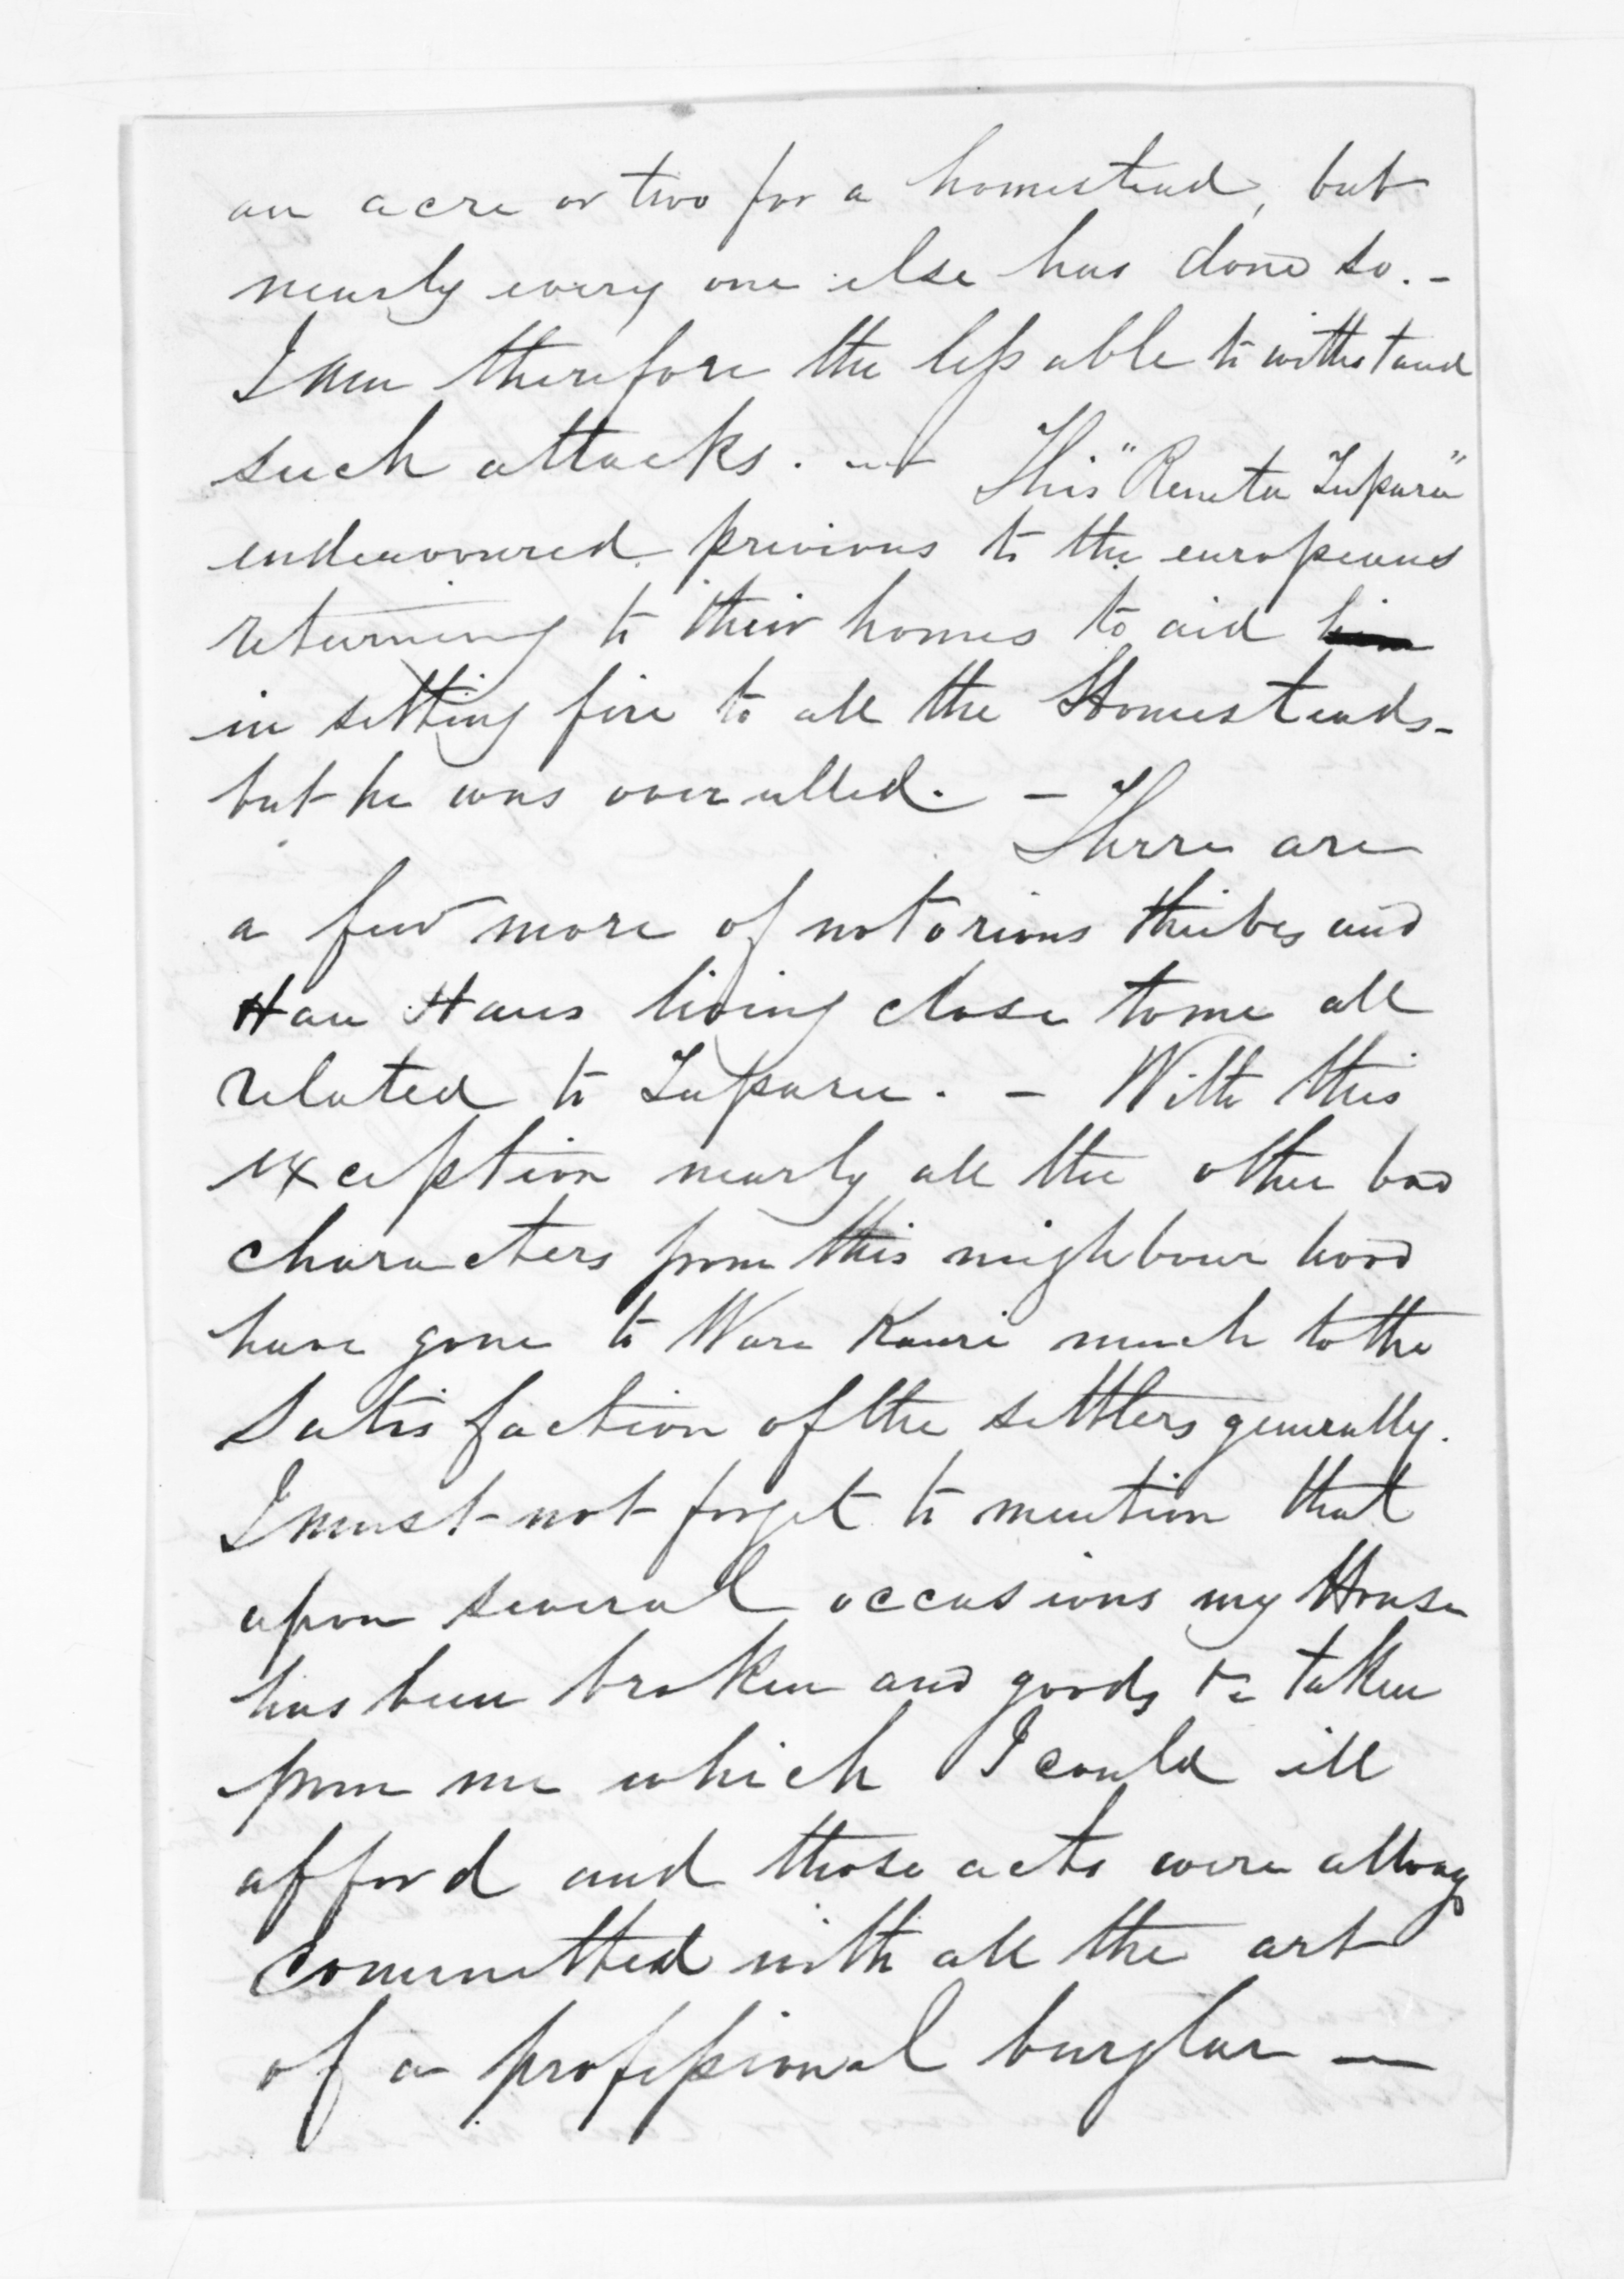 an acre or two for a homestead, but
nearly every one else has done so. -
I am therefore the less able to withstand
such attacks. - This "Reneta Tupara"
endeavoured previous to the europeans
returning to their homes to aid him
in setting fire to all the Homesteads -
but he was overulled. -
There are
a few more of notorious theibes and
Hau Haus living close to me all
related to Tupara. - With this
exception nearly all the other bad
characters from this neighbour hood
have gone to Ware Kauri much to the
Satisfaction of the settlers generally.
I must not forget to mention that
upon several occasions my House
has been broken and goods &c taken
from me which I could ill
afford and those acts were allways
committed with all the art
of a professional burglar —